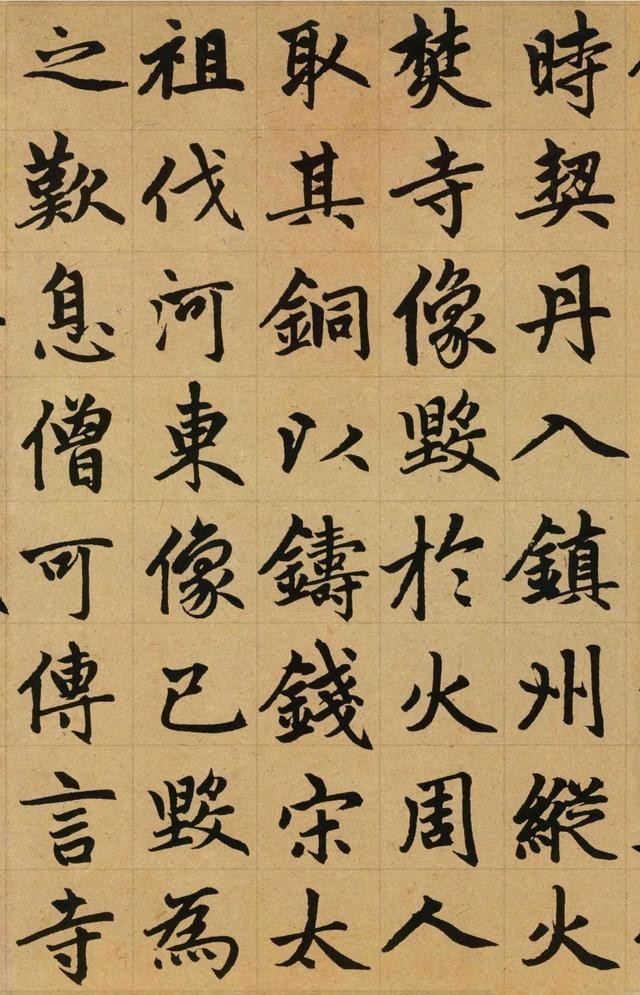 時契丹入鎮州縱火
焚寺像毀於火周人
取其銅以鑄錢宋太
祖伐河東像已毀為
之歎息僧可傳言寺